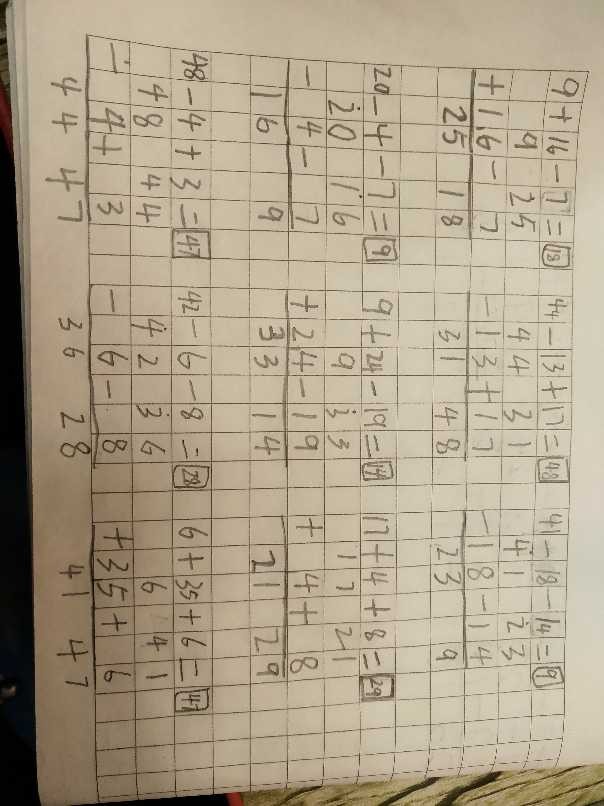 9+16-7=18 44-13+17=48 41-18-14=9
9 25 44 31 41 23
+16- 7 -13+17 -18-14
25 18 31 48 23 9
20-4-7=9 9+24-19=14 17+4+8=29
20 16 9 33 17 21
- 4- 7 +24-19 + 4+ 8
16 9 33 14 21 29
48-4+3=47 42-6-8=28 6+35+6=47
48 44 42 36 6 41
- 4+ 3 - 6- 8 +35+ 6
44 47 36 28 41 47